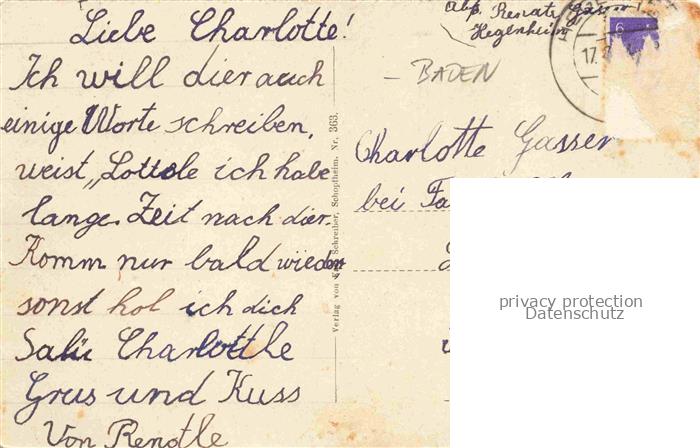 Liebe Charlotte!
Ich will dier auch
einige Worte schreiben,
weist „Lottole ich habe
lange Zeit nach dier.
Komm nur bald wieder
sonst hol ich dich
Salü Charlottle
Grus und Kuss
Von Renatle
Verlag von Schreiber, Schopfheim, Nr. 363.
Abs. Renate
Hegenheim
BADEN
6
17.
Charlotte Gasser
bei
privacy protection
Datenschutz